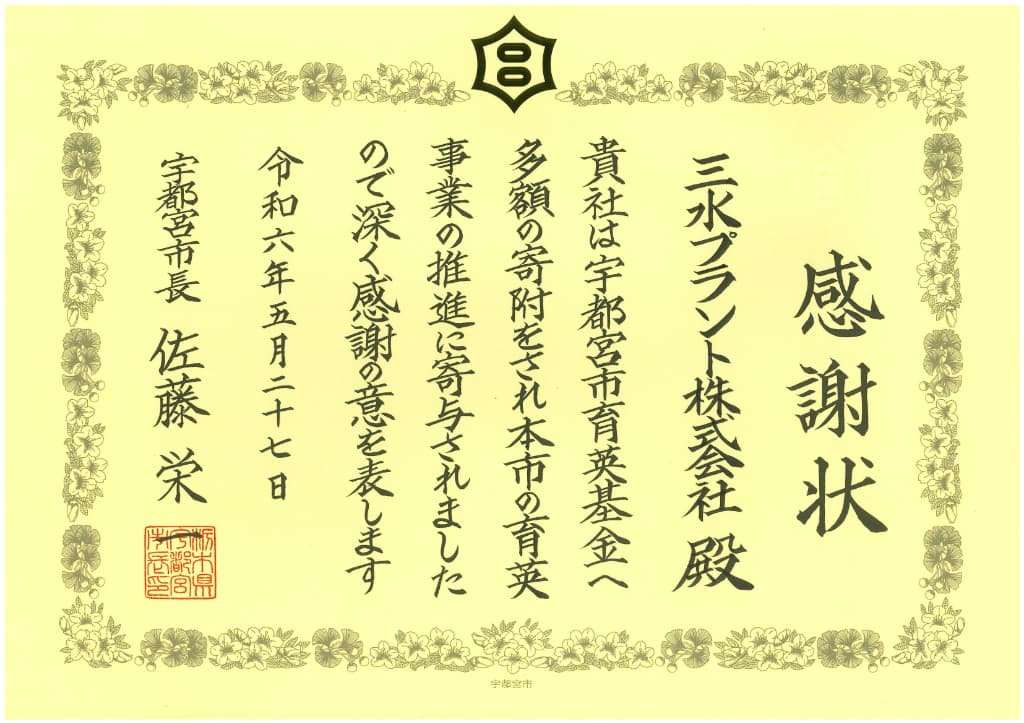 感謝状
三水プラント株式会社 殿
貴社は宇都宮市育英基金へ
多額の寄附をされ本市の育英
事業の推進に寄与されました
ので深く感謝の意を表します
令和六年五月二十七日
宇都宮市長 佐藤栄一
栃木県
宇都宮
市長印
宇都宮市